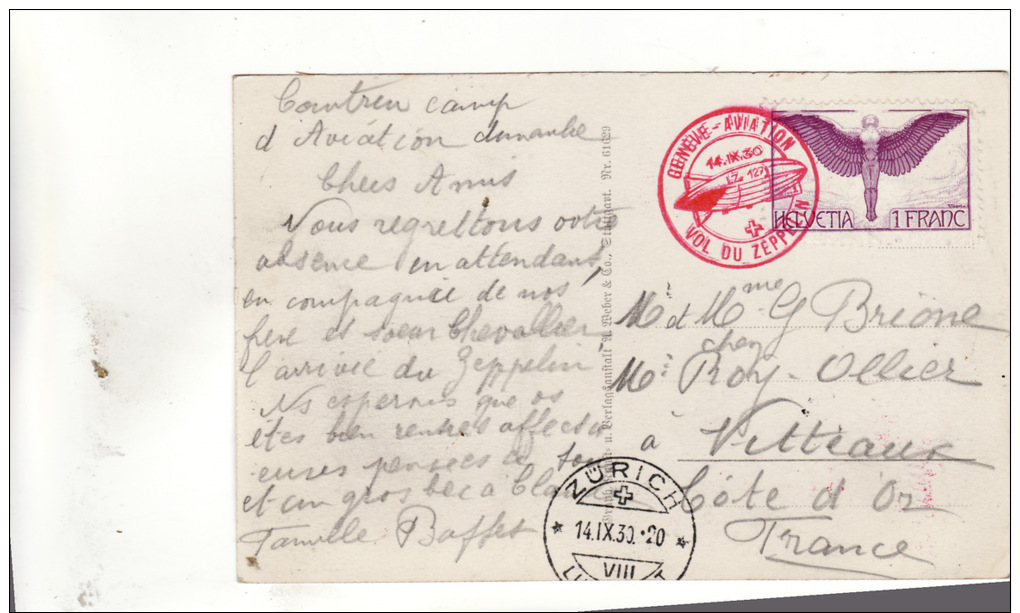 Cointrin camp
d Aviation dimanche
Chers Amis
Nous regrettons votre
absence en attendant,
en compagnie de nos
frère et soeur Chevallier
l'arrivée du Zeppelin
Ns esperons que vs
êtes bien rentrés affectu
euses pensées à tous
et un gros bec à
Famille Boffet
A. Weber & Co., Stuttgart. Nr. 61029
GENÈVE-AVIATION
14.IX.30
LZ 127
VOL DU ZEPPELIN
HELVETIA 1 FRANC
M et Mme G Brione
chez
Mr Roy-Ollier
à Vitteaux
Côte d'Or
France
ZÜRICH
14.IX.30.-20
VIII